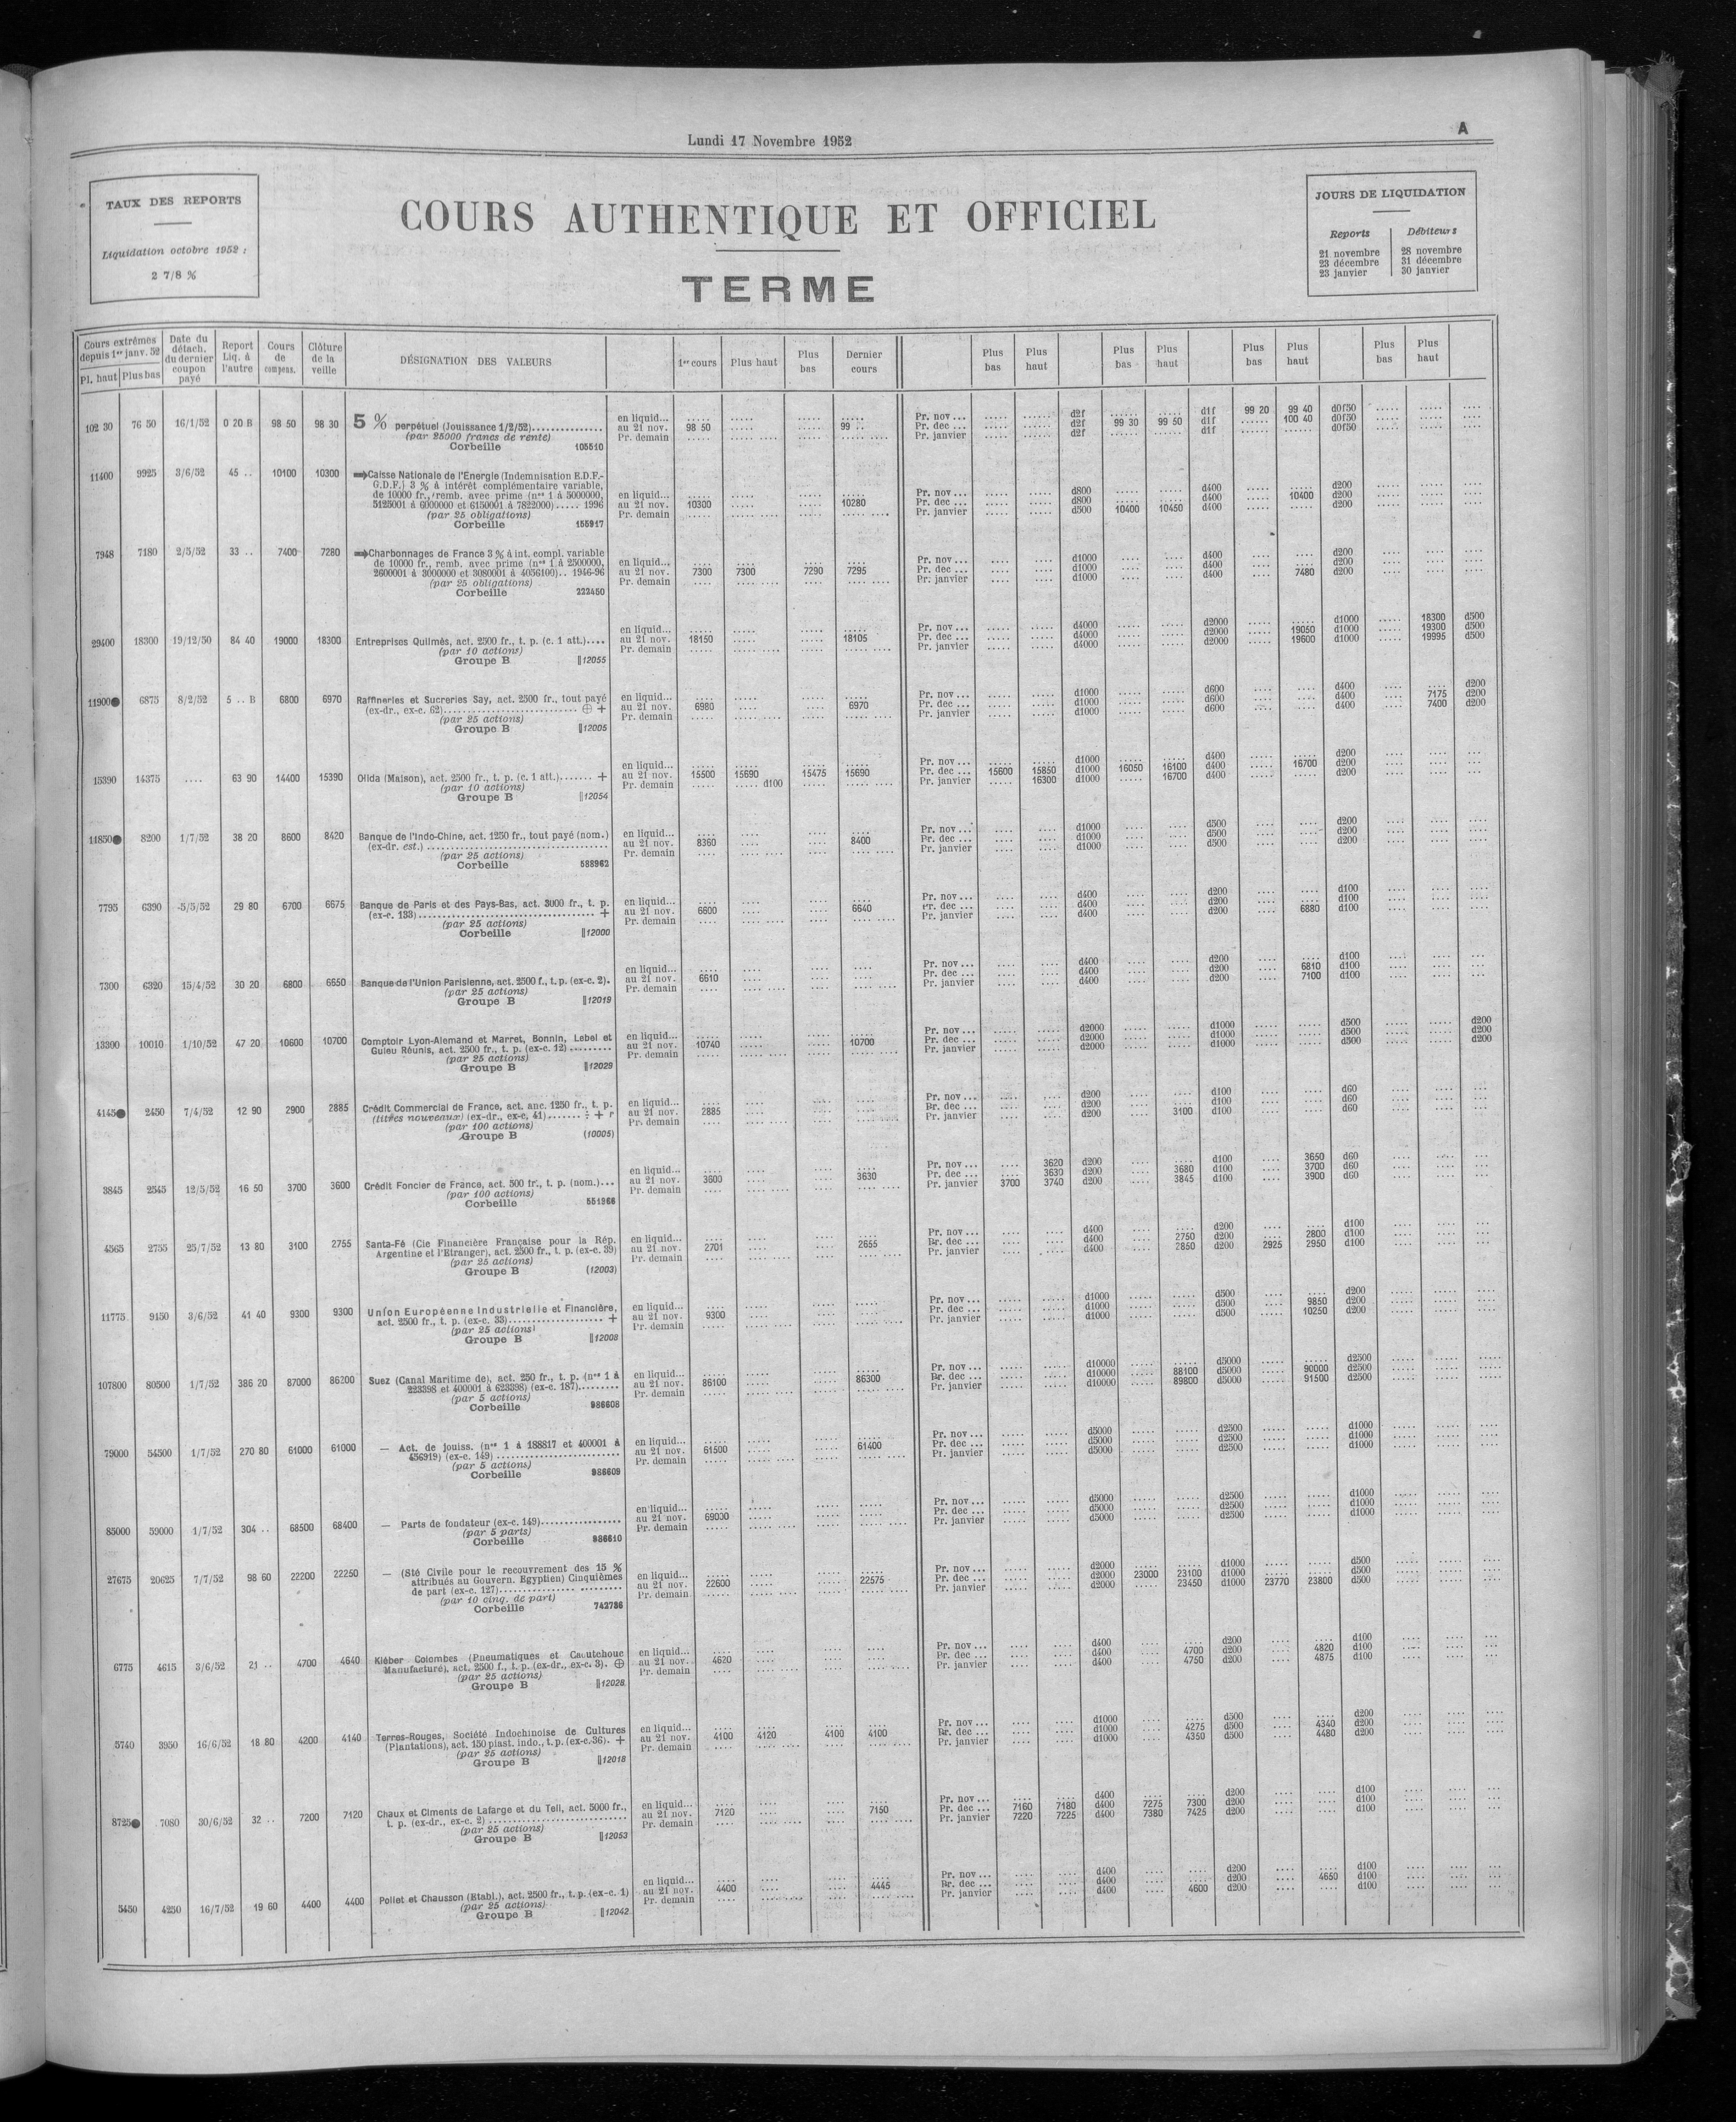 Lundi 17 Novembre 1952
A
TAUX DES REPORTS
Liquidation octobre 1952 :
2 7/8 %
COURS AUTHENTIQUE ET OFFICIEL
TERME
JOURS DE LIQUIDATION
Reports Débiteurs
21 novembre 28 novembre
23 décembre 31 décembre
23 janvier 30 janvier
Cours extrêmes depuis 1er janv. 52 Pl. haut Plus bas
Date du détach. du dernier coupon payé
Report Liq. à l'autre
Cours de compens.
Clôture de la veille
DÉSIGNATION DES VALEURS
1er cours Plus haut Plus bas Dernier cours
Plus bas Plus haut Plus bas Plus haut Plus bas Plus haut Plus bas Plus haut
102 30 76 50 16/1/52 0 20 B 98 50 98 30 5 % perpétuel (Jouissance 1/2/52)
(par 25000 francs de rente)
Corbeille 105510
en liquid... Pr. nov... d2f d1f 99 20 99 40 d0f50
au 21 nov. 98 50 99 .. Pr. dec... d2f 99 30 99 50 d1f 100 40 d0f50
Pr. demain Pr. janvier d2f d1f d0f50
11400 9925 3/6/52 45 .. 10100 10300 Caisse Nationale de l'Energie (Indemnisation E.D.F.-
G.D.F.) 3 % à intérêt complémentaire variable,
de 10000 fr., remb. avec prime (nos 1 à 5000000,
5125001 à 6000000 et 6150001 à 7822000)..... 1996
(par 25 obligations)
Corbeille 155917
en liquid... Pr. nov... d800 d400 d200
au 21 nov. 10300 10280 Pr. dec... d800 d400 10400 d200
Pr. demain Pr. janvier d500 10400 10450 d400 d200
7948 7180 2/5/52 33 .. 7400 7280 Charbonnages de France 3 % à int. compl. variable
de 10000 fr., remb. avec prime (nos 1 à 2500000,
2600001 à 3000000 et 3080001 à 4056100).. 1946-96
(par 25 obligations)
Corbeille 222450
en liquid... Pr. nov... d1000 d400 d200
au 21 nov. 7300 7300 7290 7295 Pr. dec... d1000 d400 d200
Pr. demain Pr. janvier d1000 d400 7480 d200
29400 18300 19/12/50 84 40 19000 18300 Entreprises Quilmès, act. 2500 fr., t. p. (c. 1 att.)....
(par 10 actions)
Groupe B ||12055
en liquid... Pr. nov... d4000 d2000 d1000 18300 d500
au 21 nov. 18150 18105 Pr. dec... d4000 d2000 19050 d1000 19300 d500
Pr. demain Pr. janvier d4000 d2000 19600 d1000 19995 d500
11900● 6875 8/2/52 5 .. B 6800 6970 Raffineries et Sucreries Say, act. 2500 fr., tout payé
(ex-dr., ex-c. 62) ⊕ +
(par 25 actions)
Groupe B ||12005
en liquid... Pr. nov... d1000 d600 d400 d200
au 21 nov. 6980 6970 Pr. dec... d1000 d600 d400 7175 d200
Pr. demain Pr. janvier d1000 d600 d400 7400 d200
15390 14375 .... 63 90 14400 15390 Olida (Maison), act. 2500 fr., t. p. (c. 1 att.)....... +
(par 10 actions)
Groupe B ||12054
en liquid... Pr. nov... d1000 d400 d200
au 21 nov. 15500 15690 15475 15690 Pr. dec... 15600 15850 d1000 16050 16100 d400 16700 d200
Pr. demain d100 Pr. janvier 16300 d1000 16700 d400 d200
11850● 8200 1/7/52 38 20 8600 8420 Banque de l'Indo-Chine, act. 1250 fr., tout payé (nom.)
(ex-dr. est.)
(par 25 actions)
Corbeille 588962
en liquid... Pr. nov... d1000 d500 d200
au 21 nov. 8360 8400 Pr. dec... d1000 d500 d200
Pr. demain Pr. janvier d1000 d500 d200
7795 6390 5/5/52 29 80 6700 6675 Banque de Paris et des Pays-Bas, act. 3000 fr., t. p.
(ex-c. 133) +
(par 25 actions)
Corbeille ||12000
en liquid... Pr. nov... d400 d200 d100
au 21 nov. 6600 6640 Pr. dec... d400 d200 d100
Pr. demain Pr. janvier d400 d200 6880 d100
7300 6320 15/4/52 30 20 6800 6650 Banque de l'Union Parisienne, act. 2500 f., t. p. (ex-c. 2).
(par 25 actions)
Groupe B ||12019
en liquid... Pr. nov... d400 d200 d100
au 21 nov. 6610 Pr. dec... d400 d200 6810 d100
Pr. demain Pr. janvier d400 d200 7100 d100
13300 10010 1/10/52 47 20 10600 10700 Comptoir Lyon-Alemand et Marret, Bonnin, Lebel et
Guieu Réunis, act. 2500 fr., t. p. (ex-c. 12)
(par 25 actions)
Groupe B ||12029
en liquid... Pr. nov... d2000 d1000 d500 d200
au 21 nov. 10740 10700 Pr. dec... d2000 d1000 d500 d200
Pr. demain Pr. janvier d2000 d1000 d500 d200
4145● 2450 7/4/52 12 90 2900 2885 Crédit Commercial de France, act. anc. 1250 fr., t. p.
(titres nouveaux) (ex-dr., ex-c. 41) ÷ + r
(par 100 actions)
Groupe B (10005)
en liquid... Pr. nov... d200 d100 d60
au 21 nov. 2885 Pr. dec... d200 d100 d60
Pr. demain Pr. janvier d200 3100 d100 d60
3845 2545 12/5/52 16 50 3700 3600 Crédit Foncier de France, act. 500 fr., t. p. (nom.)...
(par 100 actions)
Corbeille 551966
en liquid... Pr. nov... 3620 d200 d100 3650 d60
au 21 nov. 3600 3630 Pr. dec... 3630 d200 3680 d100 3700 d60
Pr. demain Pr. janvier 3700 3740 d200 3845 d100 3900 d60
4365 2755 25/7/52 13 80 3100 2755 Santa-Fé (Cie Financière Française pour la Rép.
Argentine et l'Etranger), act. 2500 fr., t. p. (ex-c. 39)
(par 25 actions)
Groupe B (12003)
en liquid... Pr. nov... d400 d200 d100
au 21 nov. 2701 2655 Pr. dec... d400 2750 d200 2800 d100
Pr. demain Pr. janvier d400 2850 d200 2925 2950 d100
11775 9150 3/6/52 41 40 9300 9300 Union Européenne Industrielle et Financière,
act. 2500 fr., t. p. (ex-c. 33) +
(par 25 actions)
Groupe B ||12008
en liquid... Pr. nov... d1000 d500 d200
au 21 nov. 9300 Pr. dec... d1000 d500 9850 d200
Pr. demain Pr. janvier d1000 d500 10250 d200
107800 80500 1/7/52 386 20 87000 86200 Suez (Canal Maritime de), act. 250 fr., t. p. (nos 1 à
223398 et 400001 à 623398) (ex-c. 187)
(par 5 actions)
Corbeille 986608
en liquid... Pr. nov... d10000 d5000 d2500
au 21 nov. 86100 86300 Pr. dec... d10000 88100 d5000 90000 d2500
Pr. demain Pr. janvier d10000 89800 d5000 91500 d2500
79000 54500 1/7/52 270 80 61000 61000 — Act. de jouiss. (nos 1 à 188817 et 400001 à
456919) (ex-c. 149)
(par 5 actions)
Corbeille 986609
en liquid... Pr. nov... d5000 d2500 d1000
au 21 nov. 61500 61400 Pr. dec... d5000 d2500 d1000
Pr. demain Pr. janvier d5000 d2500 d1000
85000 59000 1/7/52 304 .. 68500 68400 — Parts de fondateur (ex-c. 149)
(par 5 parts)
Corbeille 986610
en liquid... Pr. nov... d5000 d2500 d1000
au 21 nov. 69000 Pr. dec... d5000 d2500 d1000
Pr. demain Pr. janvier d5000 d2500 d1000
27675 20625 7/7/52 98 60 22200 22250 — (Sté Civile pour le recouvrement des 15 %
attribués au Gouvern. Egyptien) Cinquièmes
de part (ex-c. 127)
(par 10 cinq. de part)
Corbeille 742786
en liquid... Pr. nov... d2000 d1000 d500
au 21 nov. 22600 22575 Pr. dec... d2000 23000 23100 d1000 d500
Pr. demain Pr. janvier d2000 23450 d1000 23770 23800 d500
6775 4615 3/6/52 21 .. 4700 4640 Kléber Colombes (Pneumatiques et Caoutchouc
Manufacturé), act. 2500 f., t. p. (ex-dr., ex-c. 3). ⊕
(par 25 actions)
Groupe B ||12028
en liquid... Pr. nov... d400 d200 d100
au 21 nov. 4620 Pr. dec... d400 4700 d200 4820 d100
Pr. demain Pr. janvier d400 4750 d200 4875 d100
5740 3950 16/6/52 18 80 4200 4140 Terres-Rouges, Société Indochinoise de Cultures
(Plantations), act. 150 piast. indo., t. p. (ex-c. 36). +
(par 25 actions)
Groupe B ||12018
en liquid... Pr. nov... d1000 d500 d200
au 21 nov. 4100 4120 4100 4100 Pr. dec... d1000 4275 d500 4340 d200
Pr. demain Pr. janvier d1000 4350 d500 4480 d200
8725● 7080 30/6/52 32 .. 7200 7120 Chaux et Ciments de Lafarge et du Teil, act. 5000 fr.,
t. p. (ex-dr., ex-c. 2)
(par 25 actions)
Groupe B ||12053
en liquid... Pr. nov... d400 d200 d100
au 21 nov. 7120 7150 Pr. dec... 7160 7180 d400 7275 7300 d200 d100
Pr. demain Pr. janvier 7220 7225 d400 7380 7425 d200 d100
5450 4250 16/7/52 19 60 4400 4400 Poliet et Chausson (Etabl.), act. 2500 fr., t. p. (ex-c. 1)
(par 25 actions)
Groupe B ||12042
en liquid... Pr. nov... d400 d200 d100
au 21 nov. 4400 4445 Pr. dec... d400 d200 4650 d100
Pr. demain Pr. janvier d400 4600 d200 d100